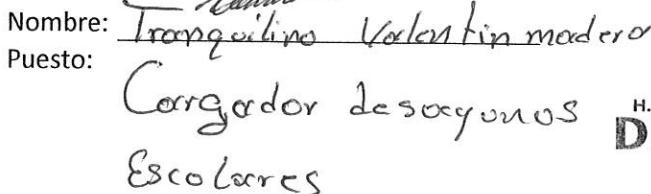 Nombre: Tranquilino Valentin madero
Puesto:
Cargador desayunos
H.
D
Escolares